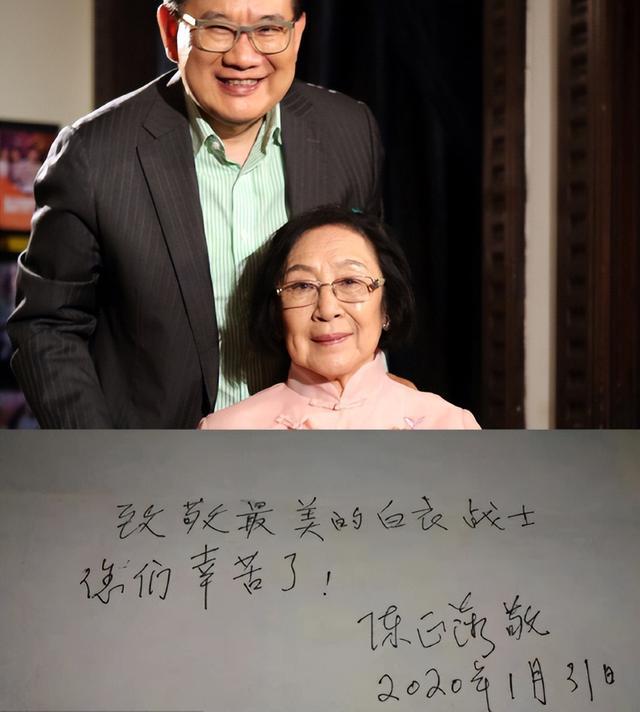 致敬最美的白衣战士
您们幸苦了!
陈正薇敬
2020年1月31日